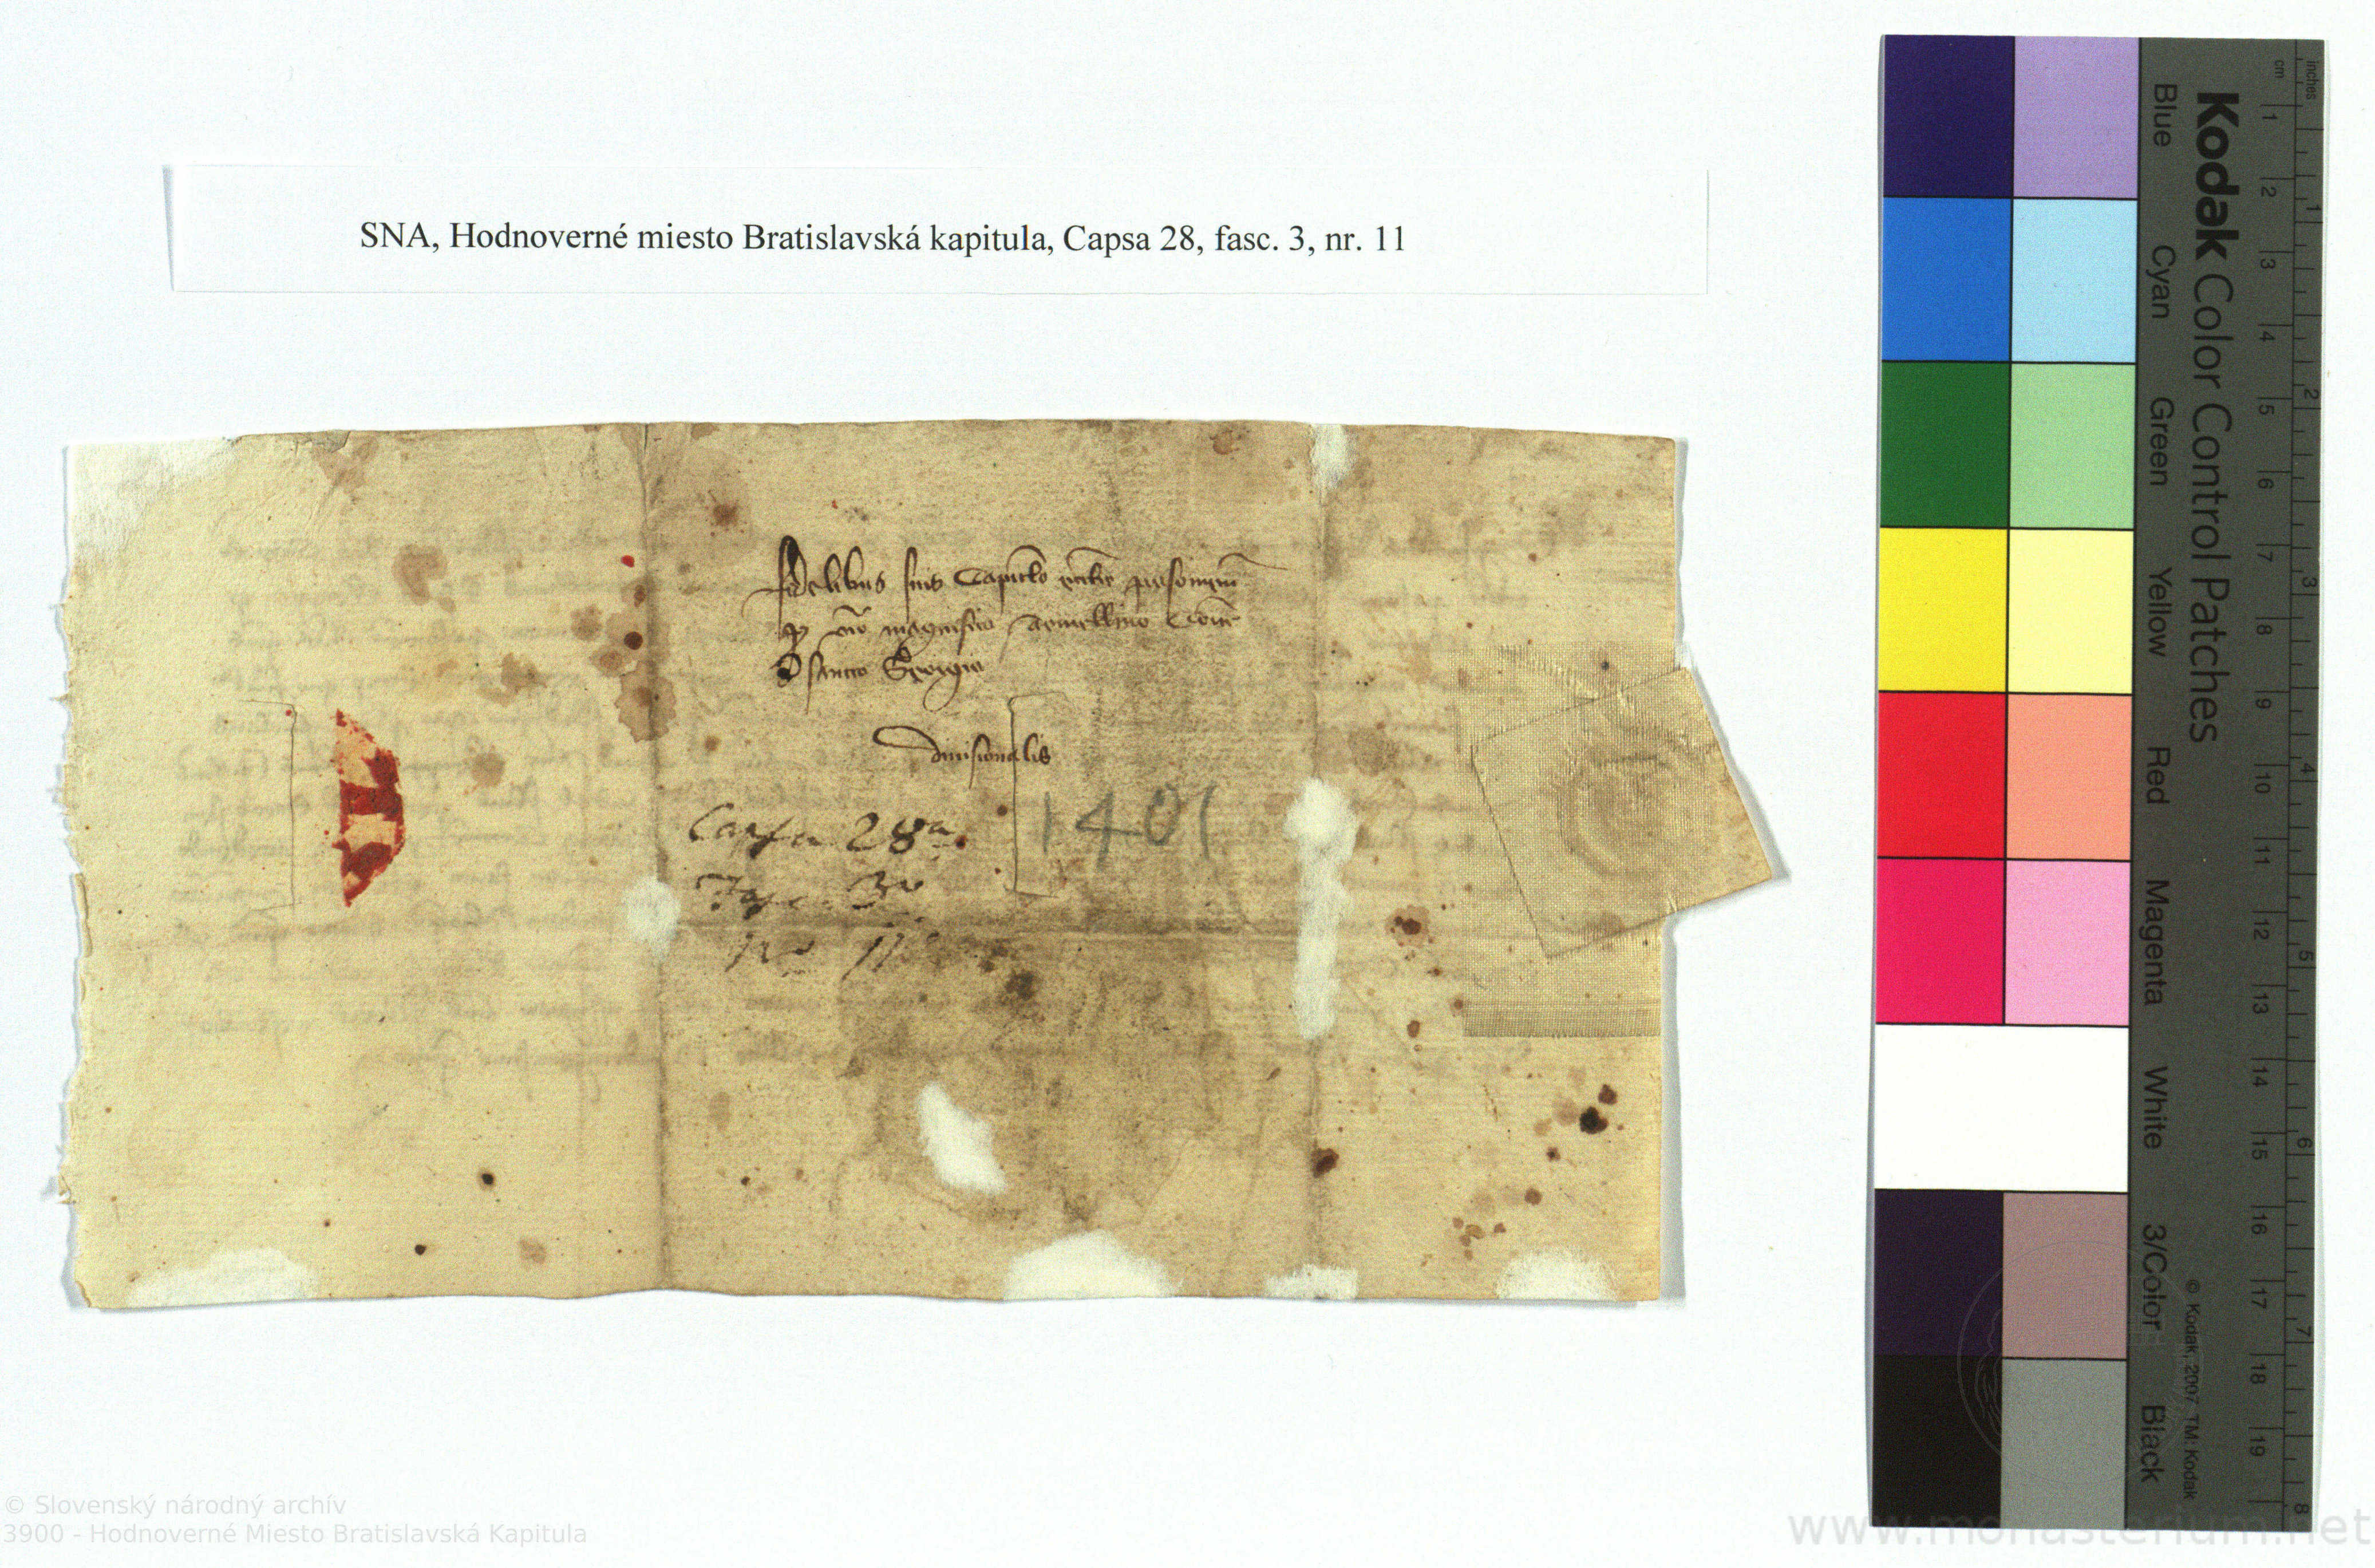 SNA, Hodnoverné miesto Bratislavská kapitula, Capsa 28, fasc. 3, nr. 11
fidelibus suis Capitlo ecclie posonien
p viro magnifico Comite
D sancto Georgio
divisionalis
Capsa 28a
1401
Fasc. 3o
Nro 11
Kodak Color Control Patches
Blue Cyan Green Yellow Red Magenta White 3/Color Black
© Kodak, 2007 TM: Kodak
inches 1 2 3 4 5 6 7 8
cm 1 2 3 4 5 6 7 8 9 10 11 12 13 14 15 16 17 18 19
© Slovenský národný archív
3900 - Hodnoverné Miesto Bratislavská Kapitula
www.monasterium.net